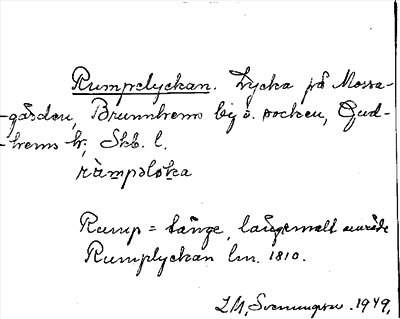 Rumpelyckan. Lycka på Mossa-
-gården, Brunnhems by o. socken, Gud-
-hems hr, Skb. l.
ràmpəloka
Rump = tånge, långsmalt område
Rumplyckan lm. 1810.
L M, Svenungsson. 1949.